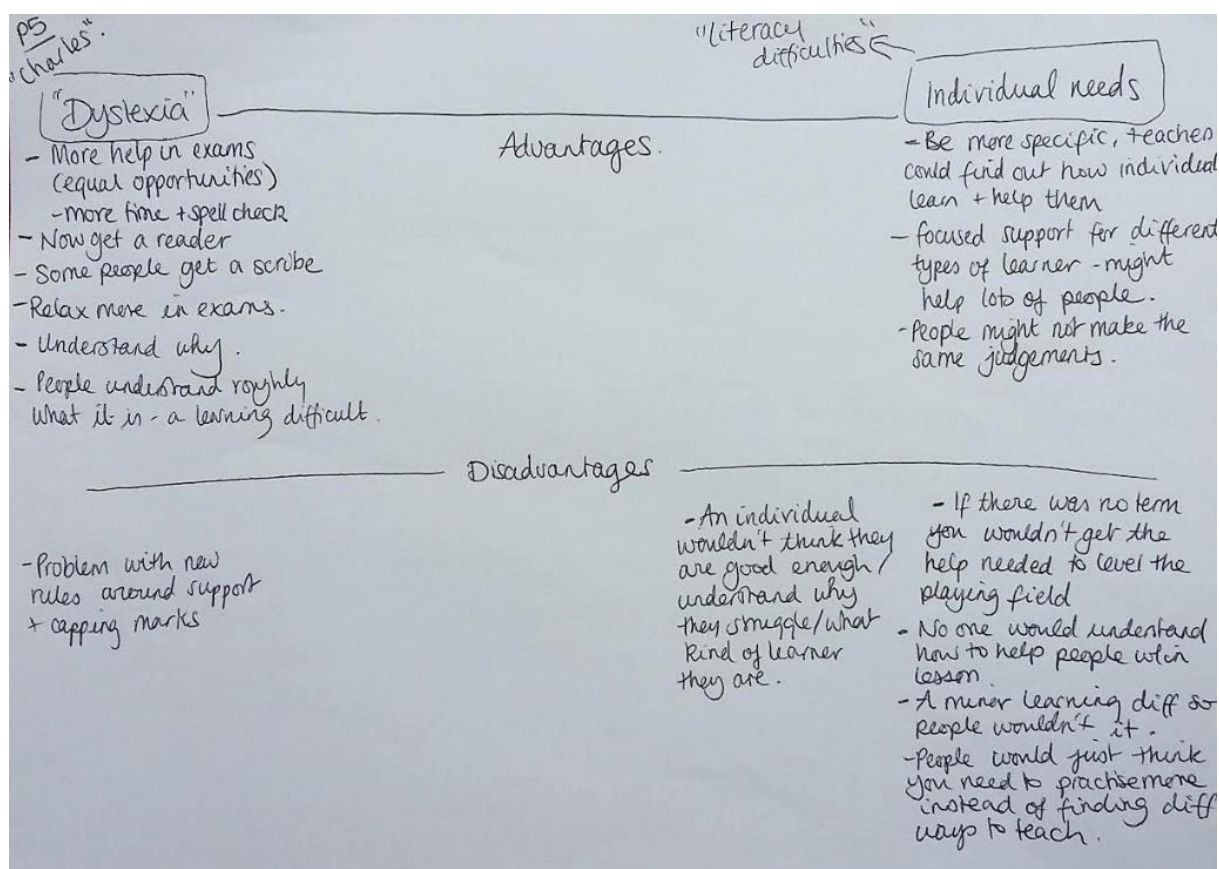 P5
"Charles".
"literacy
difficulties"
"Dyslexia"
Individual needs
Advantages.
- More help in exams
(equal opportunities)
- more time + spell check
- Now get a reader
- Some people get a scribe
- Relax more in exams.
- Understand why.
- People understand roughly
what it is - a learning difficult.
- Be more specific, teachers
could find out how individual
learn + help them
- focused support for different
types of learner - might
help lots of people.
- People might not make the
same judgements.
Disadvantages
- Problem with new
rules around support
+ capping marks
- An individual
wouldn't think they
are good enough /
understand why
they struggle/what
kind of learner
they are.
- If there was no term
you wouldn't get the
help needed to level the
playing field
- No one would understand
how to help people w/in
lesson.
- A minor learning diff so
people wouldn't it.
- People would just think
you need to practise more
instead of finding diff
ways to teach.